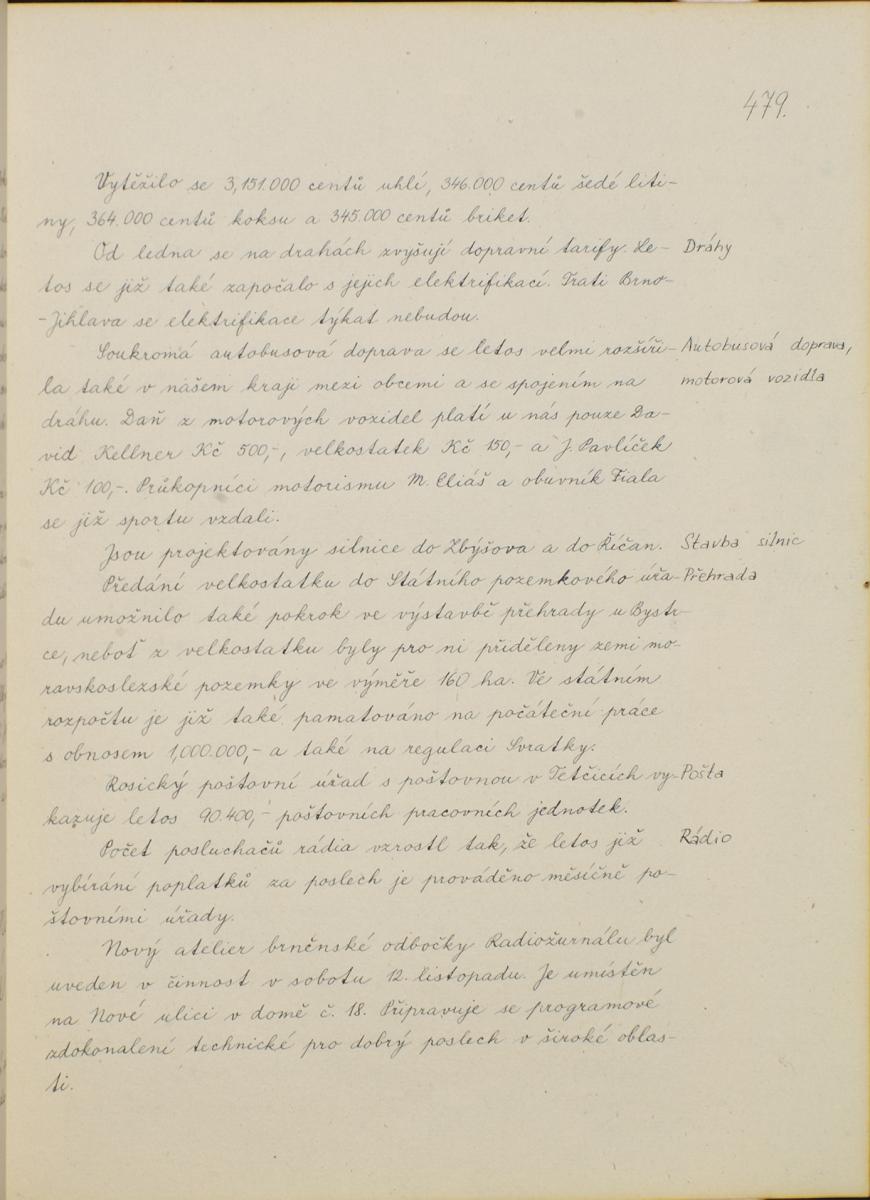 479.
Vytěžilo se 3,151.000 centů uhlí, 346.000 centů šedé liti-
ny, 364.000 centů koksu a 345.000 centů briket.
Od ledna se na drahách zvyšují dopravní tarify. Le- Dráhy
tos se již také započalo s jejich elektrifikací. Trati Brno-
-Jihlava se elektrifikace týkat nebudou.
Soukromá autobusová doprava se letos velmi rozšíři- Autobusová doprava,
la také v našem kraji mezi obcemi a se spojením na motorová vozidla
dráhu. Daň z motorových vozidel platí u nás pouze Da-
vid Kellner Kč 500,-, velkostatek Kč 150,- a J. Pavlíček
Kč 100,-. Průkopníci motorismu M. Eliáš a obuvník Fiala
se již sportu vzdali.
Jsou projektovány silnice do Zbýšova a do Říčan. Stavba silnic
Předání velkostatku do Státního pozemkového úřa- Přehrada
du umožnilo také pokrok ve výstavbě přehrady u Bystr-
ce, neboť z velkostatku byly pro ni přiděleny zemi mo-
ravskoslezské pozemky ve výměře 160 ha. Ve státním
rozpočtu je již také pamatováno na počáteční práce
s obnosem 1,000.000,- a také na regulaci Svratky.
Rosický poštovní úřad s poštovnou v Tetčicích vy- Pošta
kazuje letos 90.400,- poštovních pracovních jednotek.
Počet posluchačů rádia vzrostl tak, že letos již Rádio
vybírání poplatků za poslech je prováděno měsíčně po-
štovními úřady.
Nový atelier brněnské odbočky Radiožurnálu byl
uveden v činnost v sobotu 12. listopadu. Je umístěn
na Nové ulici v domě č. 18. Připravuje se programové
zdokonalení technické pro dobrý poslech v široké oblas-
ti.